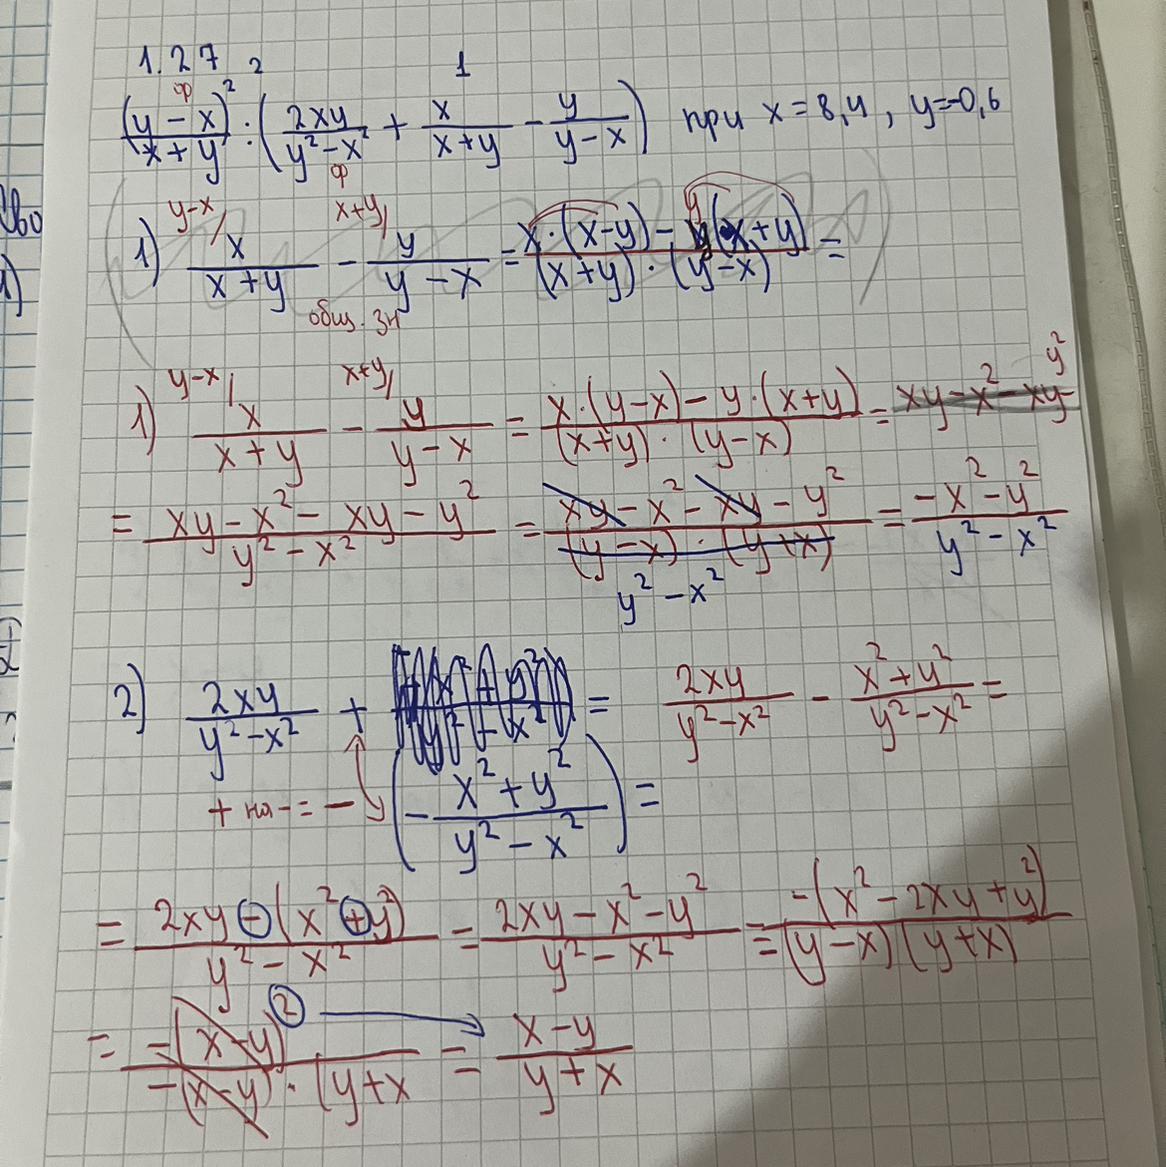 1.27 2 1
ф
((y - x)/(x + y))² : (2xy/(y² - x²) + x/(x + y) - y/(y - x)) при x = 8,4, y = -0,6
ф
y-x/ x+y/
1) x/(x + y) - y/(y - x) = (x · (x - y) - y(x + y))/((x + y) · (y - x)) =
общ. зн
y-x/ x+y/
1) x/(x + y) - y/(y - x) = (x · (y - x) - y · (x + y))/((x + y) · (y - x)) = xy - x² - xy - y²
= (xy - x² - xy - y²)/(y² - x²) = (xy - x² - xy - y²)/((y - x) · (y + x)) = (-x² - y²)/(y² - x²)
y² - x²
2) 2xy/(y² - x²) + = 2xy/(y² - x²) - (x² + y²)/(y² - x²) =
+ на - = - (-(x² + y²)/(y² - x²)) =
= (2xy - (x² + y²))/(y² - x²) = (2xy - x² - y²)/(y² - x²) = -(x² - 2xy + y²)/((y - x)(y + x))
= -(x - y)²/(-(x - y) · (y + x) = (x - y)/(y + x)